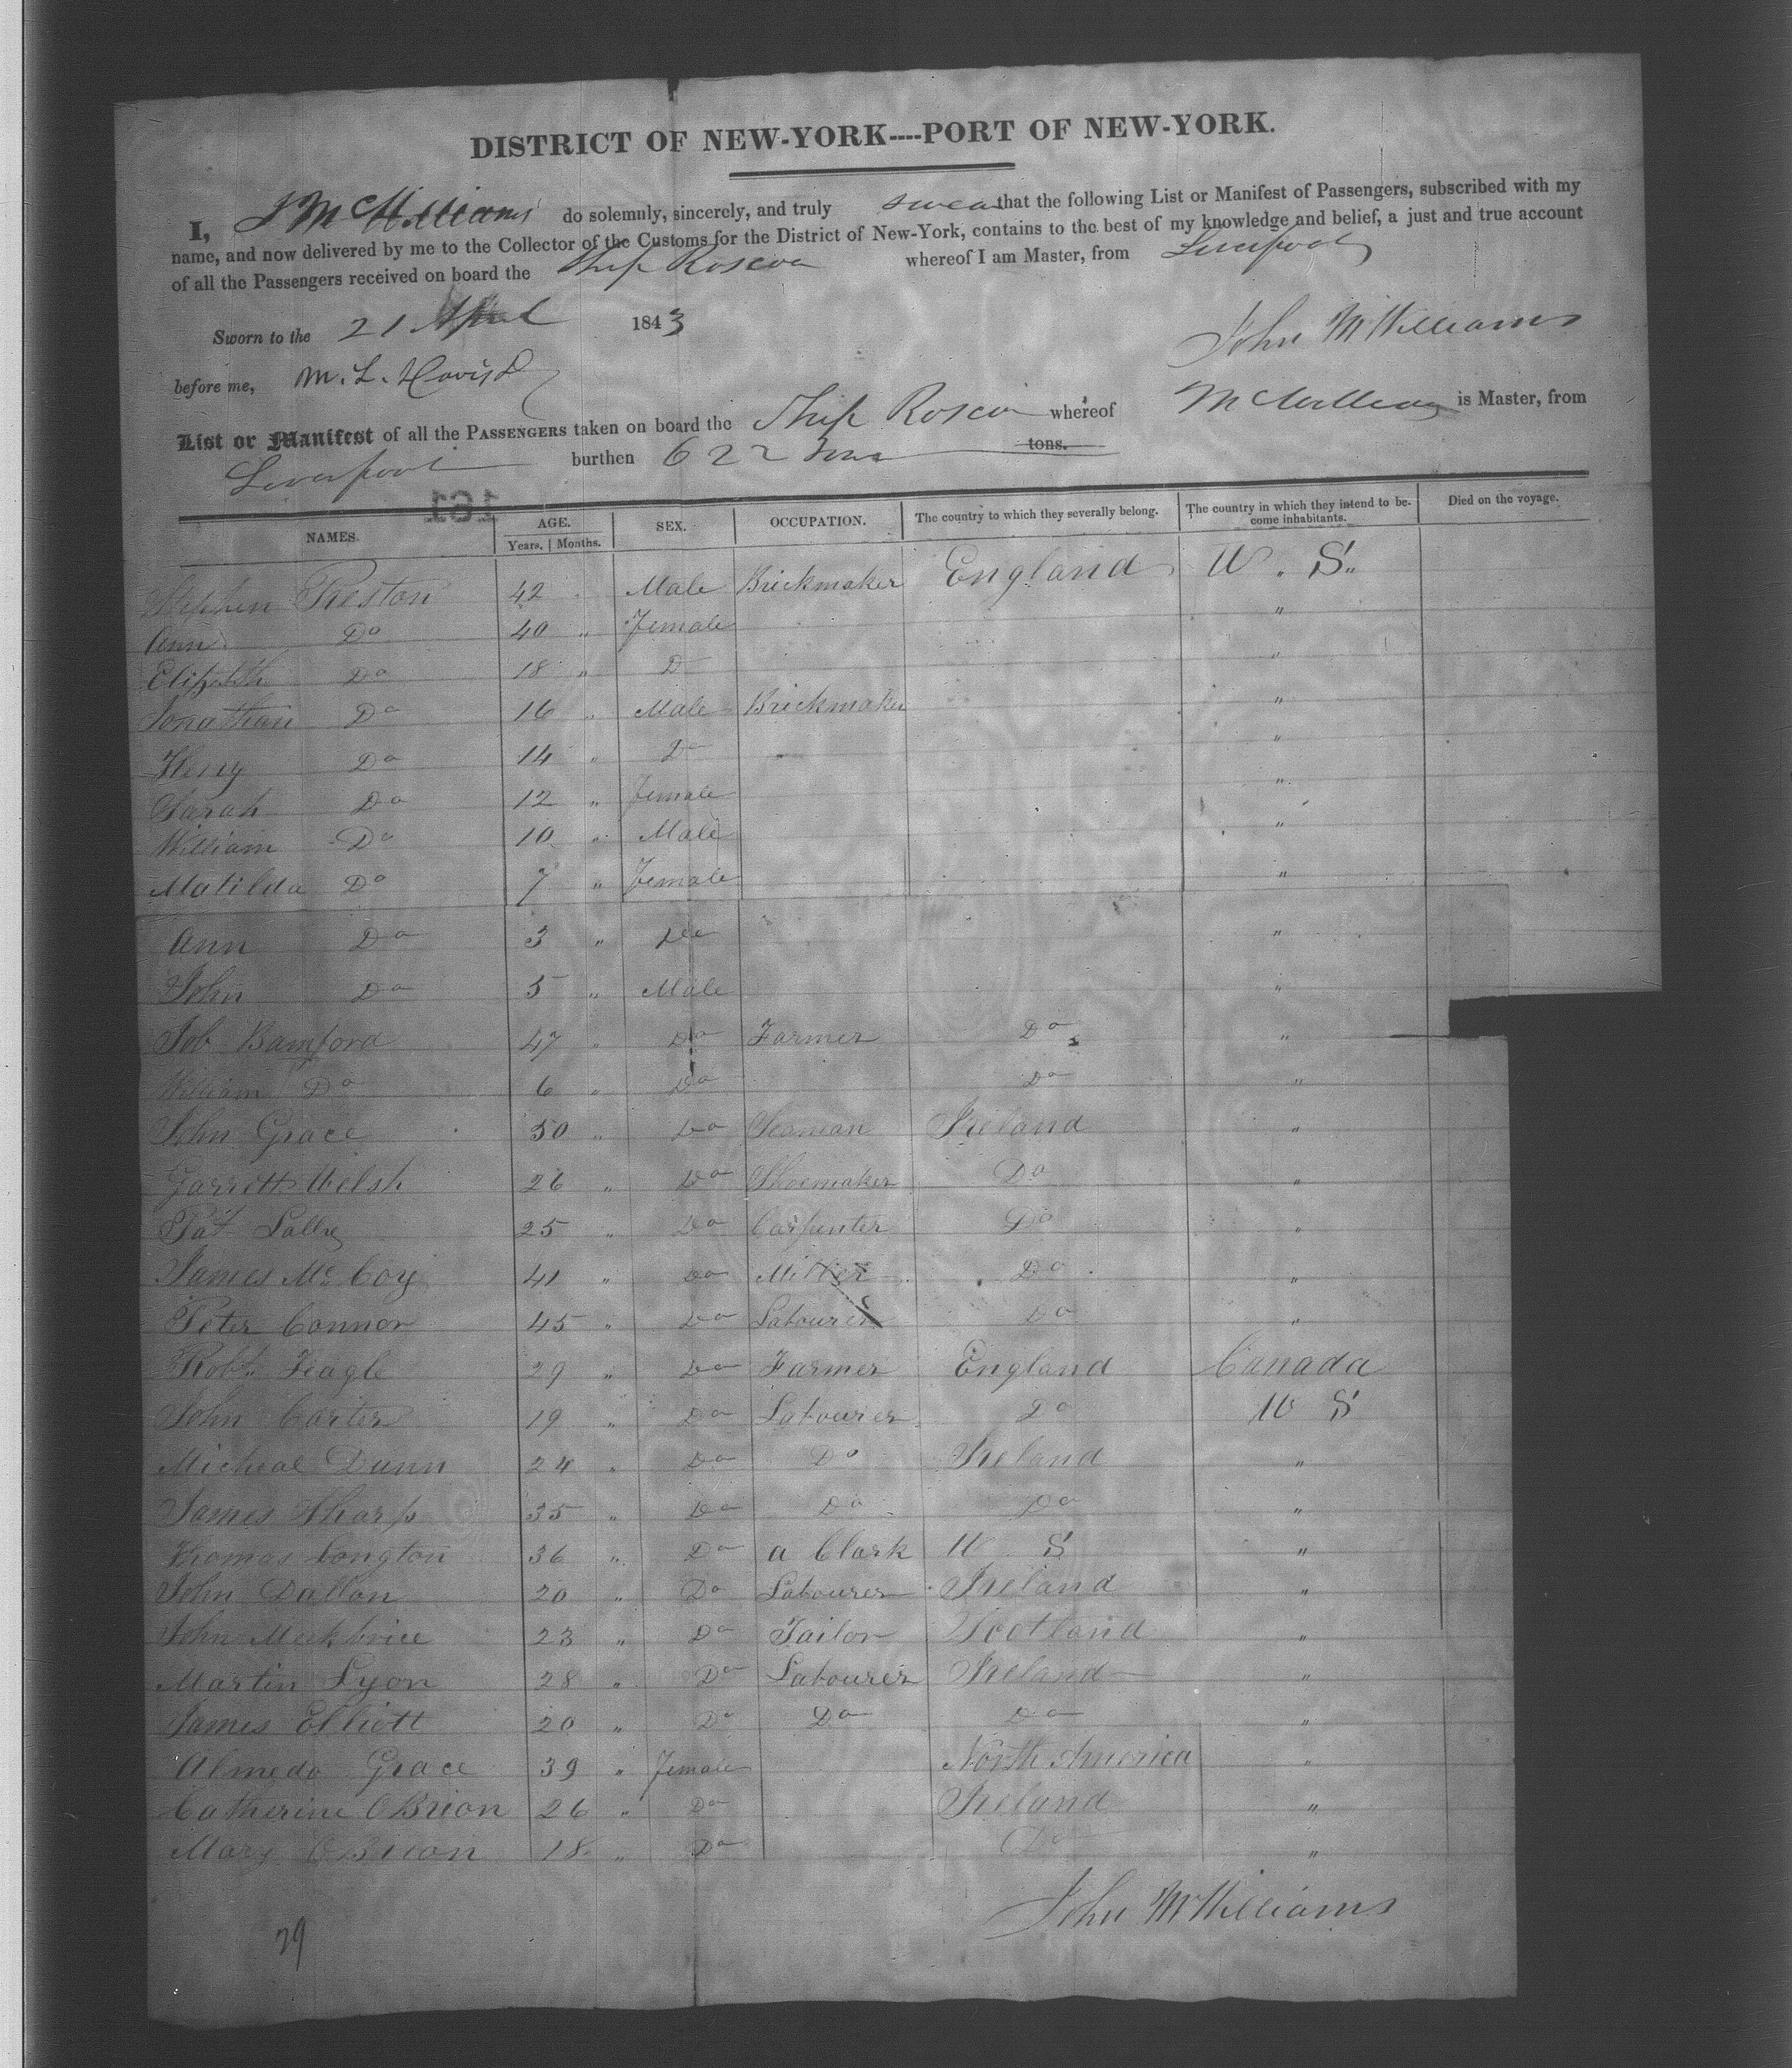 DISTRICT OF NEW-YORK----PORT OF NEW-YORK.
I, J McWilliams do solemnly, sincerely, and truly swear that the following List or Manifest of Passengers, subscribed with my
name, and now delivered by me to the Collector of the Customs for the District of New-York, contains to the best of my knowledge and belief, a just and true account
of all the Passengers received on board the Ship Roscoe whereof I am Master, from Liverpool
Sworn to the 21 April 1843
John McWilliams
before me, M. L.
List or Manifest of all the PASSENGERS taken on board the Ship Roscoe whereof McWilliams is Master, from
Liverpool burthen 622 tons tons.
161
NAMES. AGE. SEX. OCCUPATION. The country to which they severally belong. The country in which they intend to be- Died on the voyage.
Years. Months. come inhabitants.
Stephen Preston 42 " Male Brickmaker England U. S.
Ann Do 40 " Female "
Elizabth Do 18 " D "
Jonathan Do 16 " Male Brickmaker "
Henry Do 14 " Do "
Sarah Do 12 " Female "
William Do 10 " Male "
Matilda Do 7 " Female "
Ann Do 3 " Do "
John Do 5 " Male "
Job Bamford 47 " Do Farmer Do "
William Do 6 " Do Do "
John Grace 50 " Do Seaman Ireland "
Garrett Welsh 26 " Do Shoemaker Do "
Pat Lally 25 " Do Carpenter Do "
James McCoy 41 " Do Miller Do "
Peter Connor 45 " Do Labourer Do "
Robt. Feagle 29 " Do Farmer England Canada
John Carter 19 " Do Labourer Do U S
Micheal Dunn 24 " Do Do Ireland "
James Tharp 35 " Do Do Do "
Thomas Longton 36 " Do a Clark U S "
John Dallon 20 " Do Labourer Ireland "
John 23 " Do Tailor Scotland "
Martin Lyon 28 " Do Labourer Ireland "
James Elliott 20 " Do Do Do "
Almeda Grace 39 " Female North America "
Catherine OBrion 26 " Do Ireland "
Mary OBrion 18 " Do Do "
John McWilliams
29